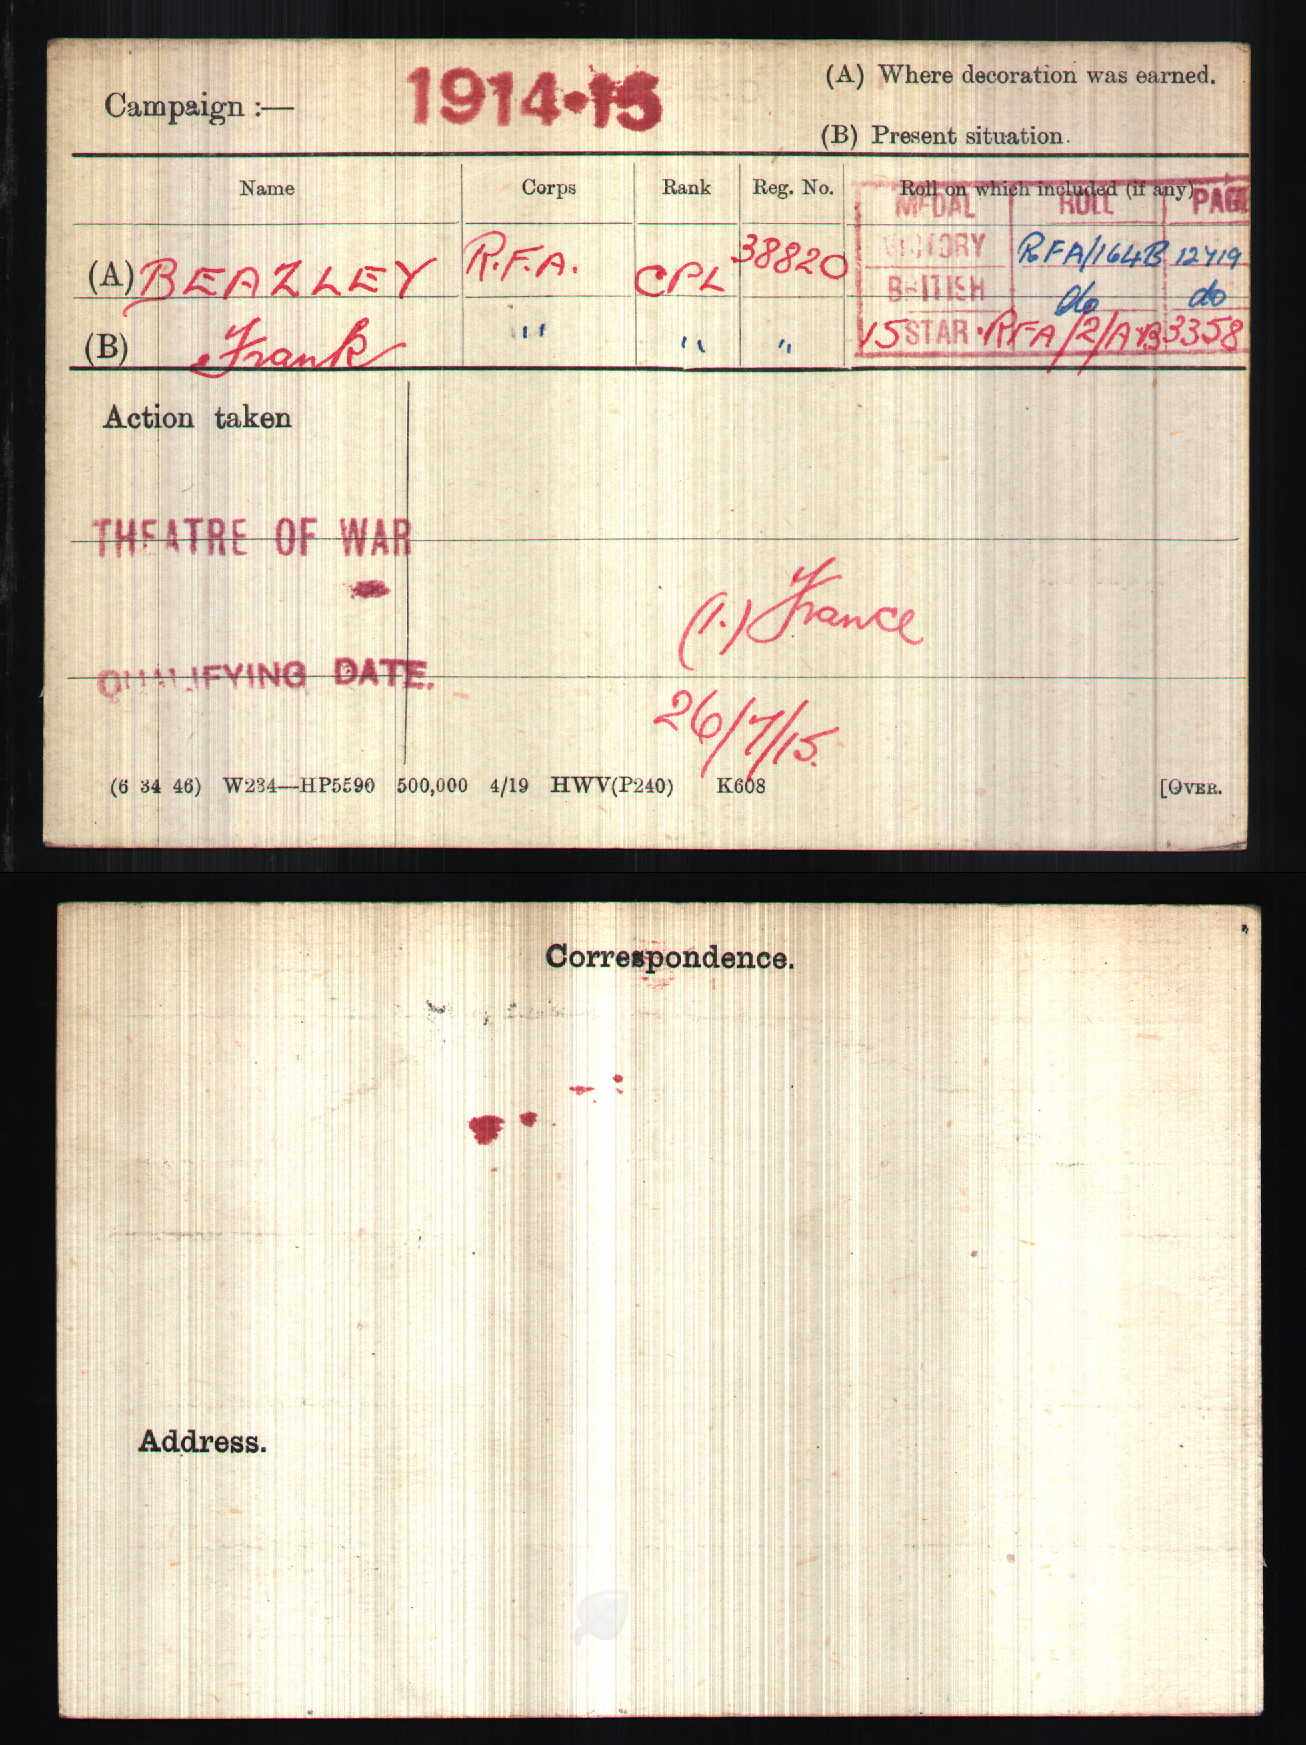 Campaign :— 1914-15
(A) Where decoration was earned.
(B) Present situation.
Name Corps Rank Reg. No. Roll on which included (if any)
MEDAL ROLL PAGE
(A) BEAZLEY R.F.A. CPL 38820 VICTORY RFA/164B 12419
BRITISH do do
(B) Frank " " " 15 STAR RFA/2/AB 3358
Action taken
THEATRE OF WAR
(1.) France
QUALIFYING DATE.
26/7/15.
(6 34 46) W234—HP5590 500,000 4/19 HWV(P240) K608 [OVER.
Correspondence.
Address.